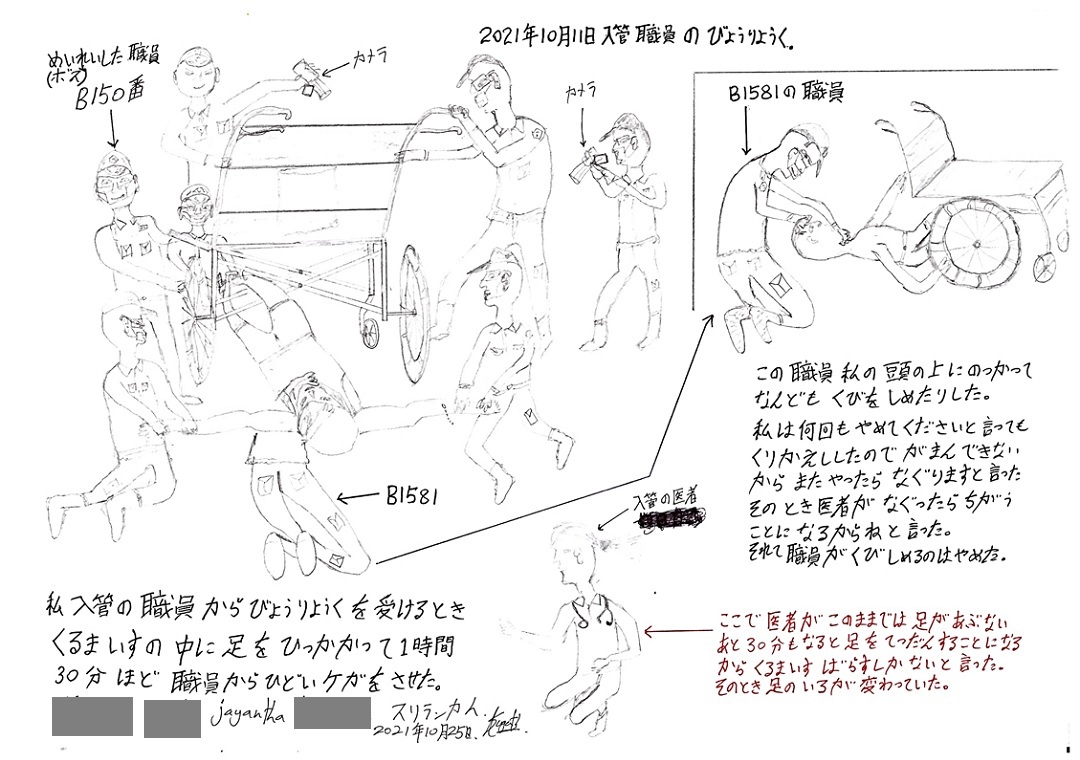 2021年10月11日入管職員のびょうりょうく。
めいれいした職員
(ボス)
B150番
カメラ
カメラ
B1581の職員
この職員私の頭の上にのっかって
なんどもくびをしめたりした。
私は何回もやめてくださいと言っても
くりかえししたのでがまんできない
からまたやったらなぐりますと言った
そのとき医者がなぐったらちがう
ことになるからねと言った。
それで職員がくびしめるのはやめた。
B1581
入管の医者
私入管の職員からびょうりょうくを受けるとき
くるまいすの中に足をひっかかって1時間
30分ほど職員からひどいケガをさせた。
jayantha
スリランカ人
2021年10月25日
ここで医者がこのままでは足があぶない
あと30分もなると足をてつだんすることになる
からくるまいすばらすしかないと言った。
そのとき足のいろが変わっていた。